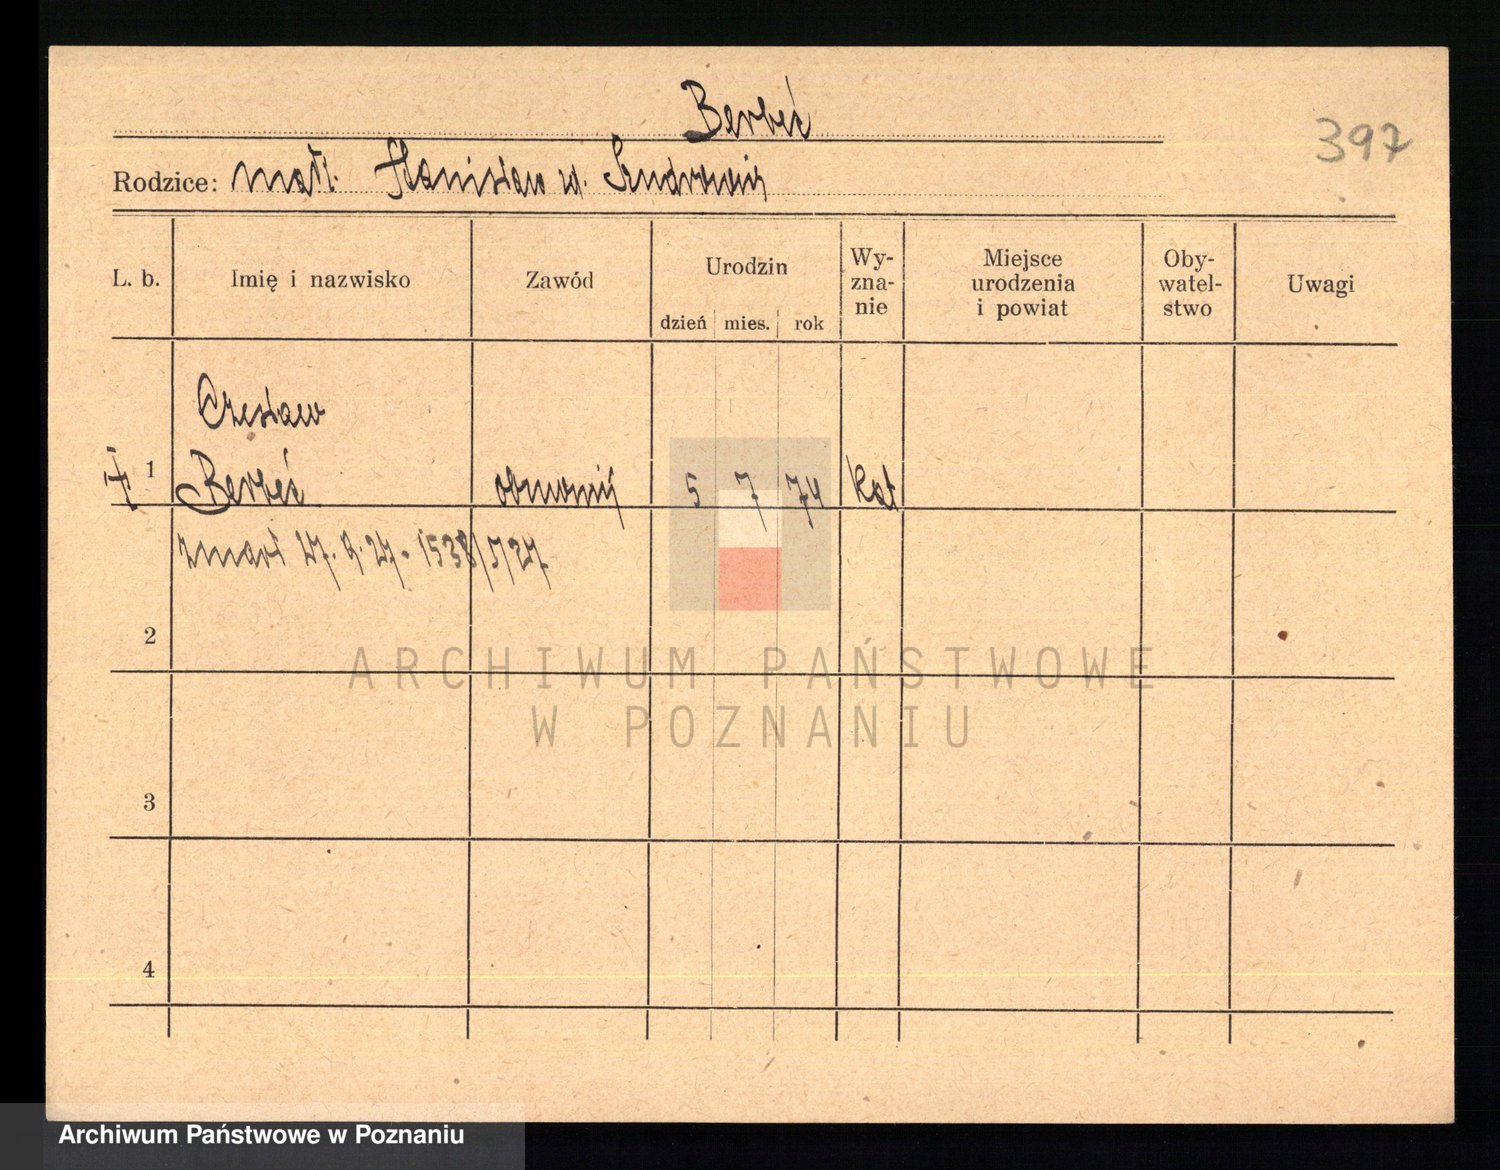 Berbeć
397
Rodzice: małż. Stanisław
L. b.
Imię i nazwisko
Zawód
Urodzin
dzień mies. rok
Wy-
zna-
nie
Miejsce
urodzenia
i powiat
Oby-
watel-
stwo
Uwagi
Czesław
1 Berbeć 5 7 74 kat
zmarł 27. 9. 27. 1538/V/27
2
3
4
ARCHIWUM PAŃSTWOWE
W POZNANIU
Archiwum Państwowe w Poznaniu